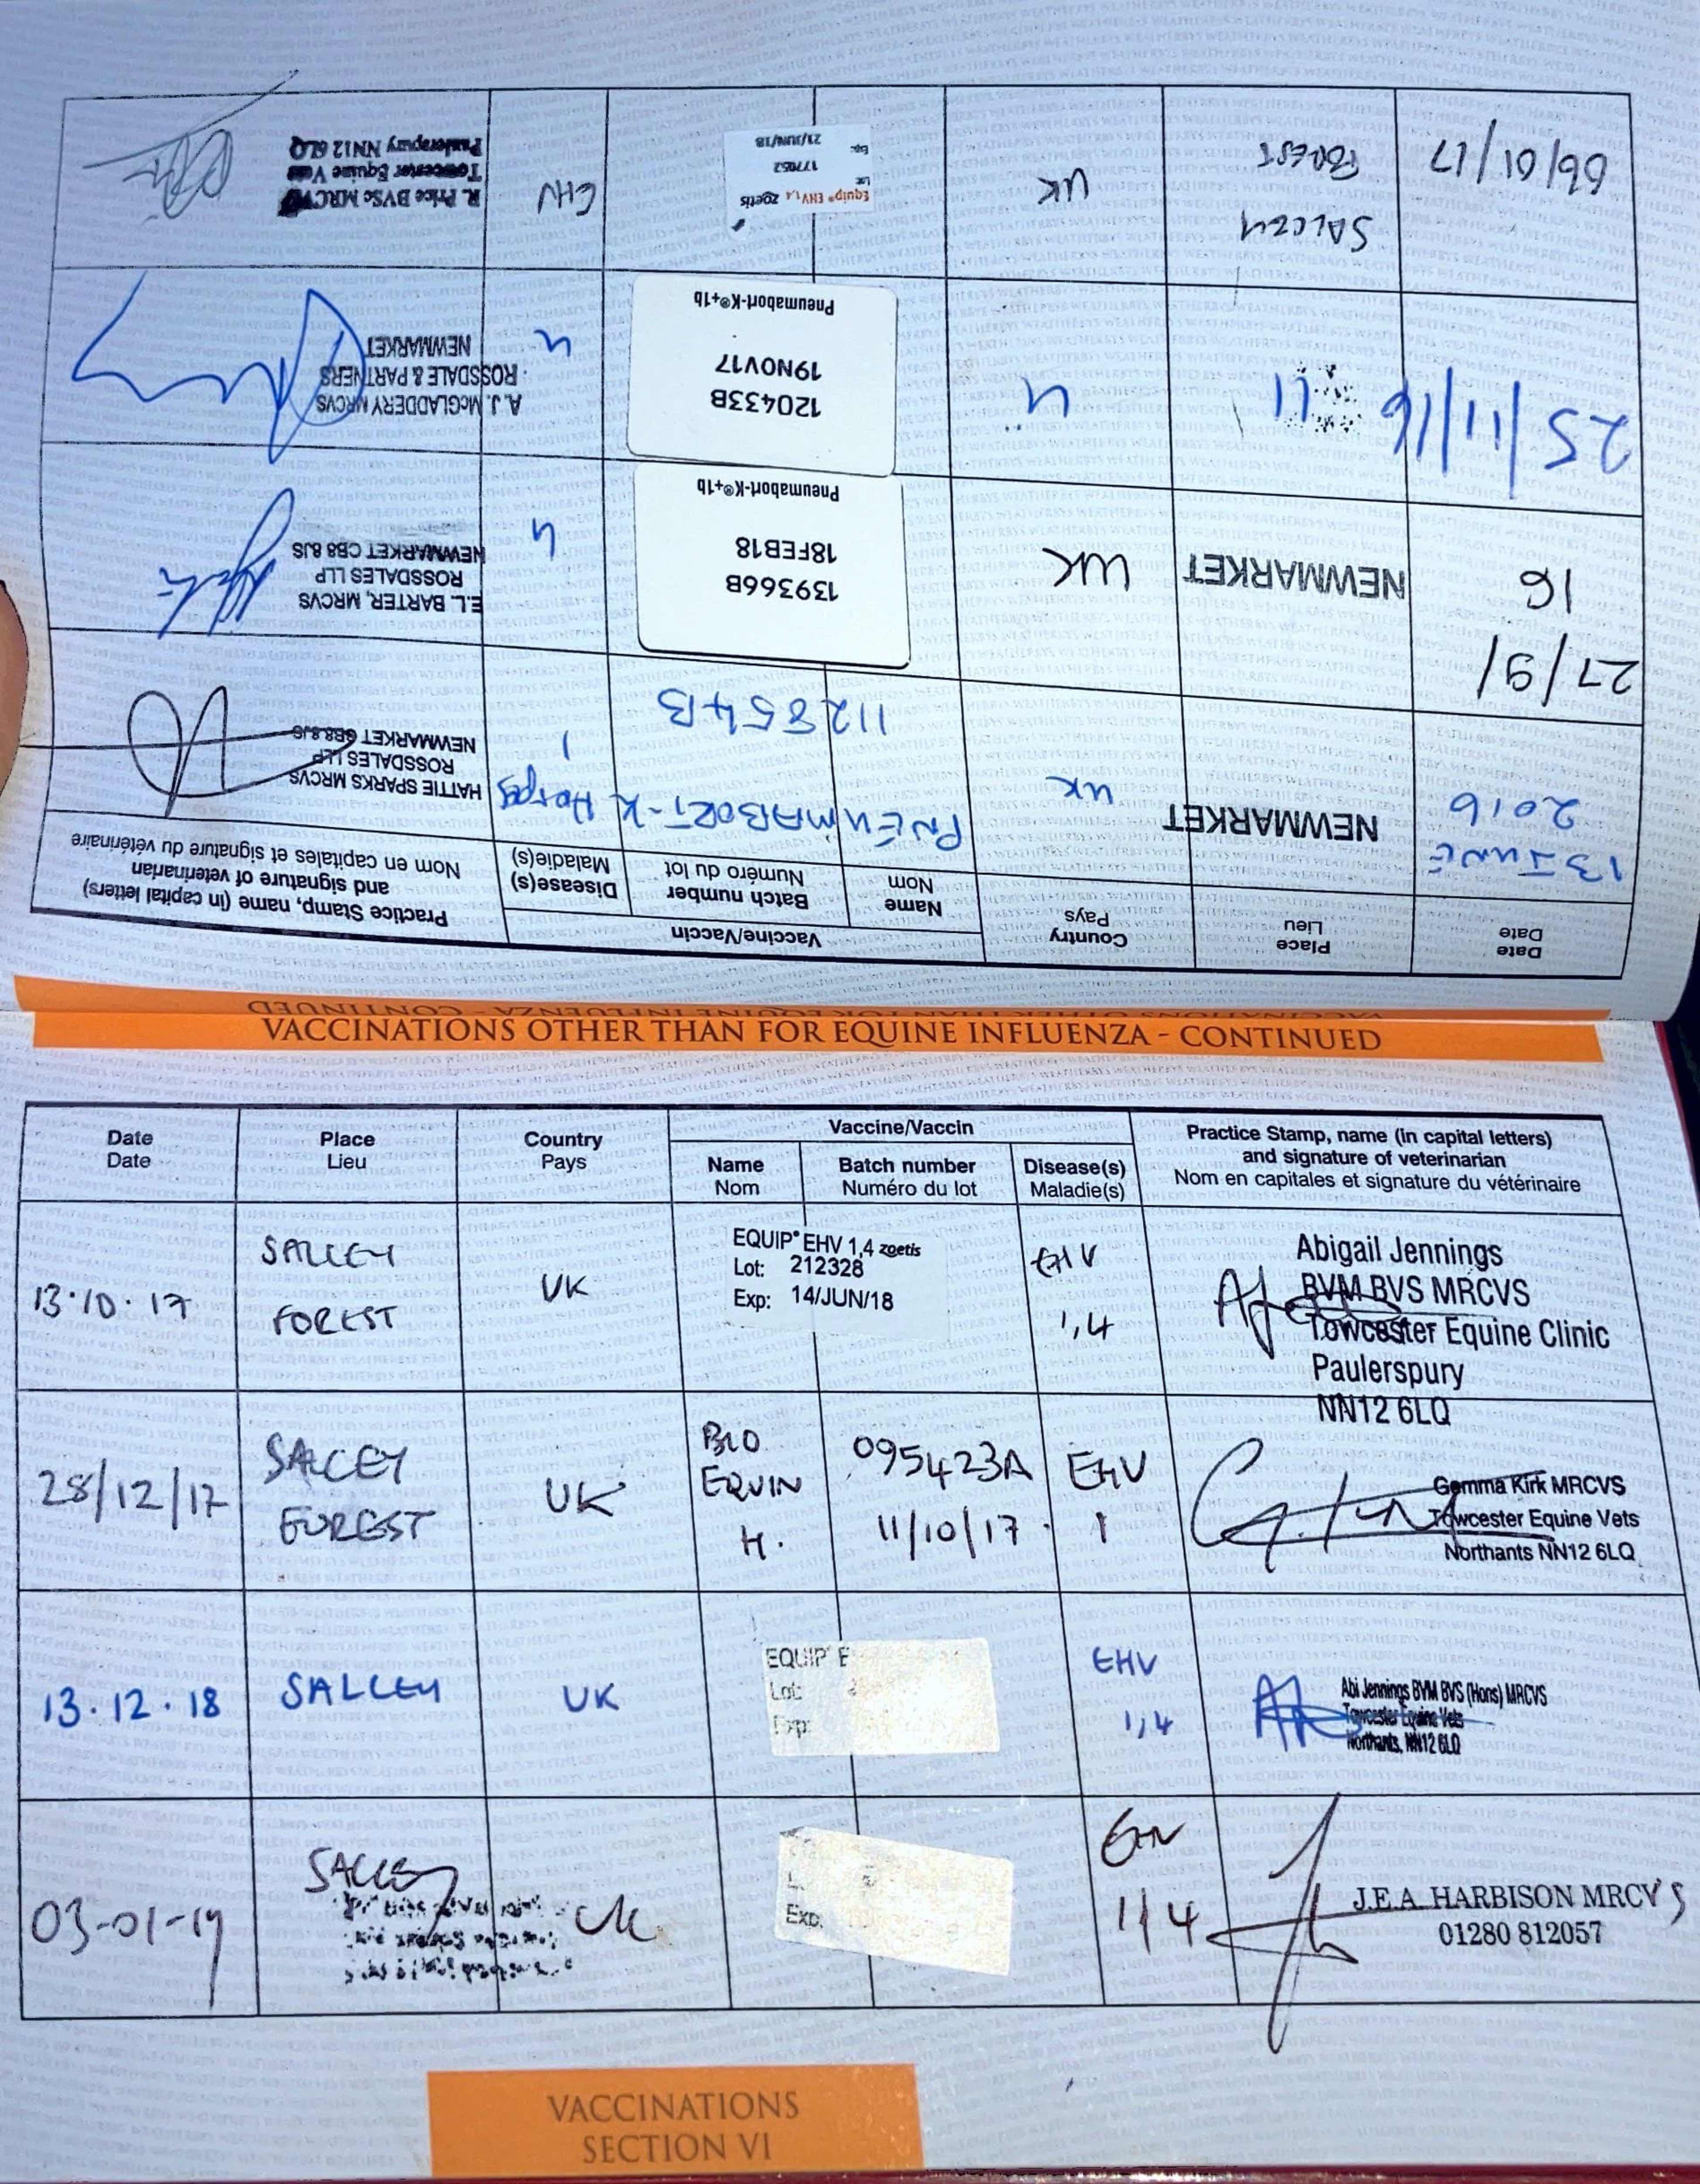 VACCINATIONS OTHER THAN FOR EQUINE INFLUENZA - CONTINUED
Date
Date
Place
Lieu
Country
Pays
Vaccine/Vaccin
Name
Nom
Batch number
Numéro du lot
Disease(s)
Maladie(s)
Practice Stamp, name (in capital letters)
and signature of veterinarian
Nom en capitales et signature du vétérinaire
13 JUNE
2016
NEWMARKET
UK
PNEUMABORT-K
112854B
Herpes
1
HATTIE SPARKS MRCVS
ROSSDALES LLP
NEWMARKET CB8 8JS
27/9/
16
NEWMARKET
UK
139366B
18FEB18
Pneumabort-K®+1b
E.L. BARTER, MRCVS
ROSSDALES LLP
NEWMARKET CB8 8JS
25/11/16
120433B
19NOV17
Pneumabort-K®+1b
A.J. McGLADDERY MRCVS
ROSSDALE & PARTNERS
NEWMARKET
06/01/17
SALCEY
FOREST
UK
Equip® EHV 1,4 zoetis
Lot: 177052
Exp: 21/JUN/18
EHV
R. Price BVSc MRCVS
Towcester Equine Vets
Paulerspury NN12 6LQ
VACCINATIONS OTHER THAN FOR EQUINE INFLUENZA - CONTINUED
Date
Date
Place
Lieu
Country
Pays
Vaccine/Vaccin
Name
Nom
Batch number
Numéro du lot
Disease(s)
Maladie(s)
Practice Stamp, name (in capital letters)
and signature of veterinarian
Nom en capitales et signature du vétérinaire
13.10.17
SALCEY
FOREST
UK
EQUIP® EHV 1,4 zoetis
Lot: 212328
Exp: 14/JUN/18
EHV
1,4
Abigail Jennings
BVM BVS MRCVS
Towcester Equine Clinic
Paulerspury
NN12 6LQ
28/12/17
SALCEY
FOREST
UK
BIO
EQUIN
H.
095423A
11/10/17
EHV
1
Gemma Kirk MRCVS
Towcester Equine Vets
Northants NN12 6LQ
13.12.18
SALCEY
UK
EQUIP® E
Lot:
Exp:
EHV
1,4
Abi Jennings BVM BVS (Hons) MRCVS
Towcester Equine Vets
Northants, NN12 6LQ
03-01-19
SALCEY
UK
Exp.
EHV
1/4
J.E.A. HARBISON MRCVS
01280 812057
VACCINATIONS
SECTION VI